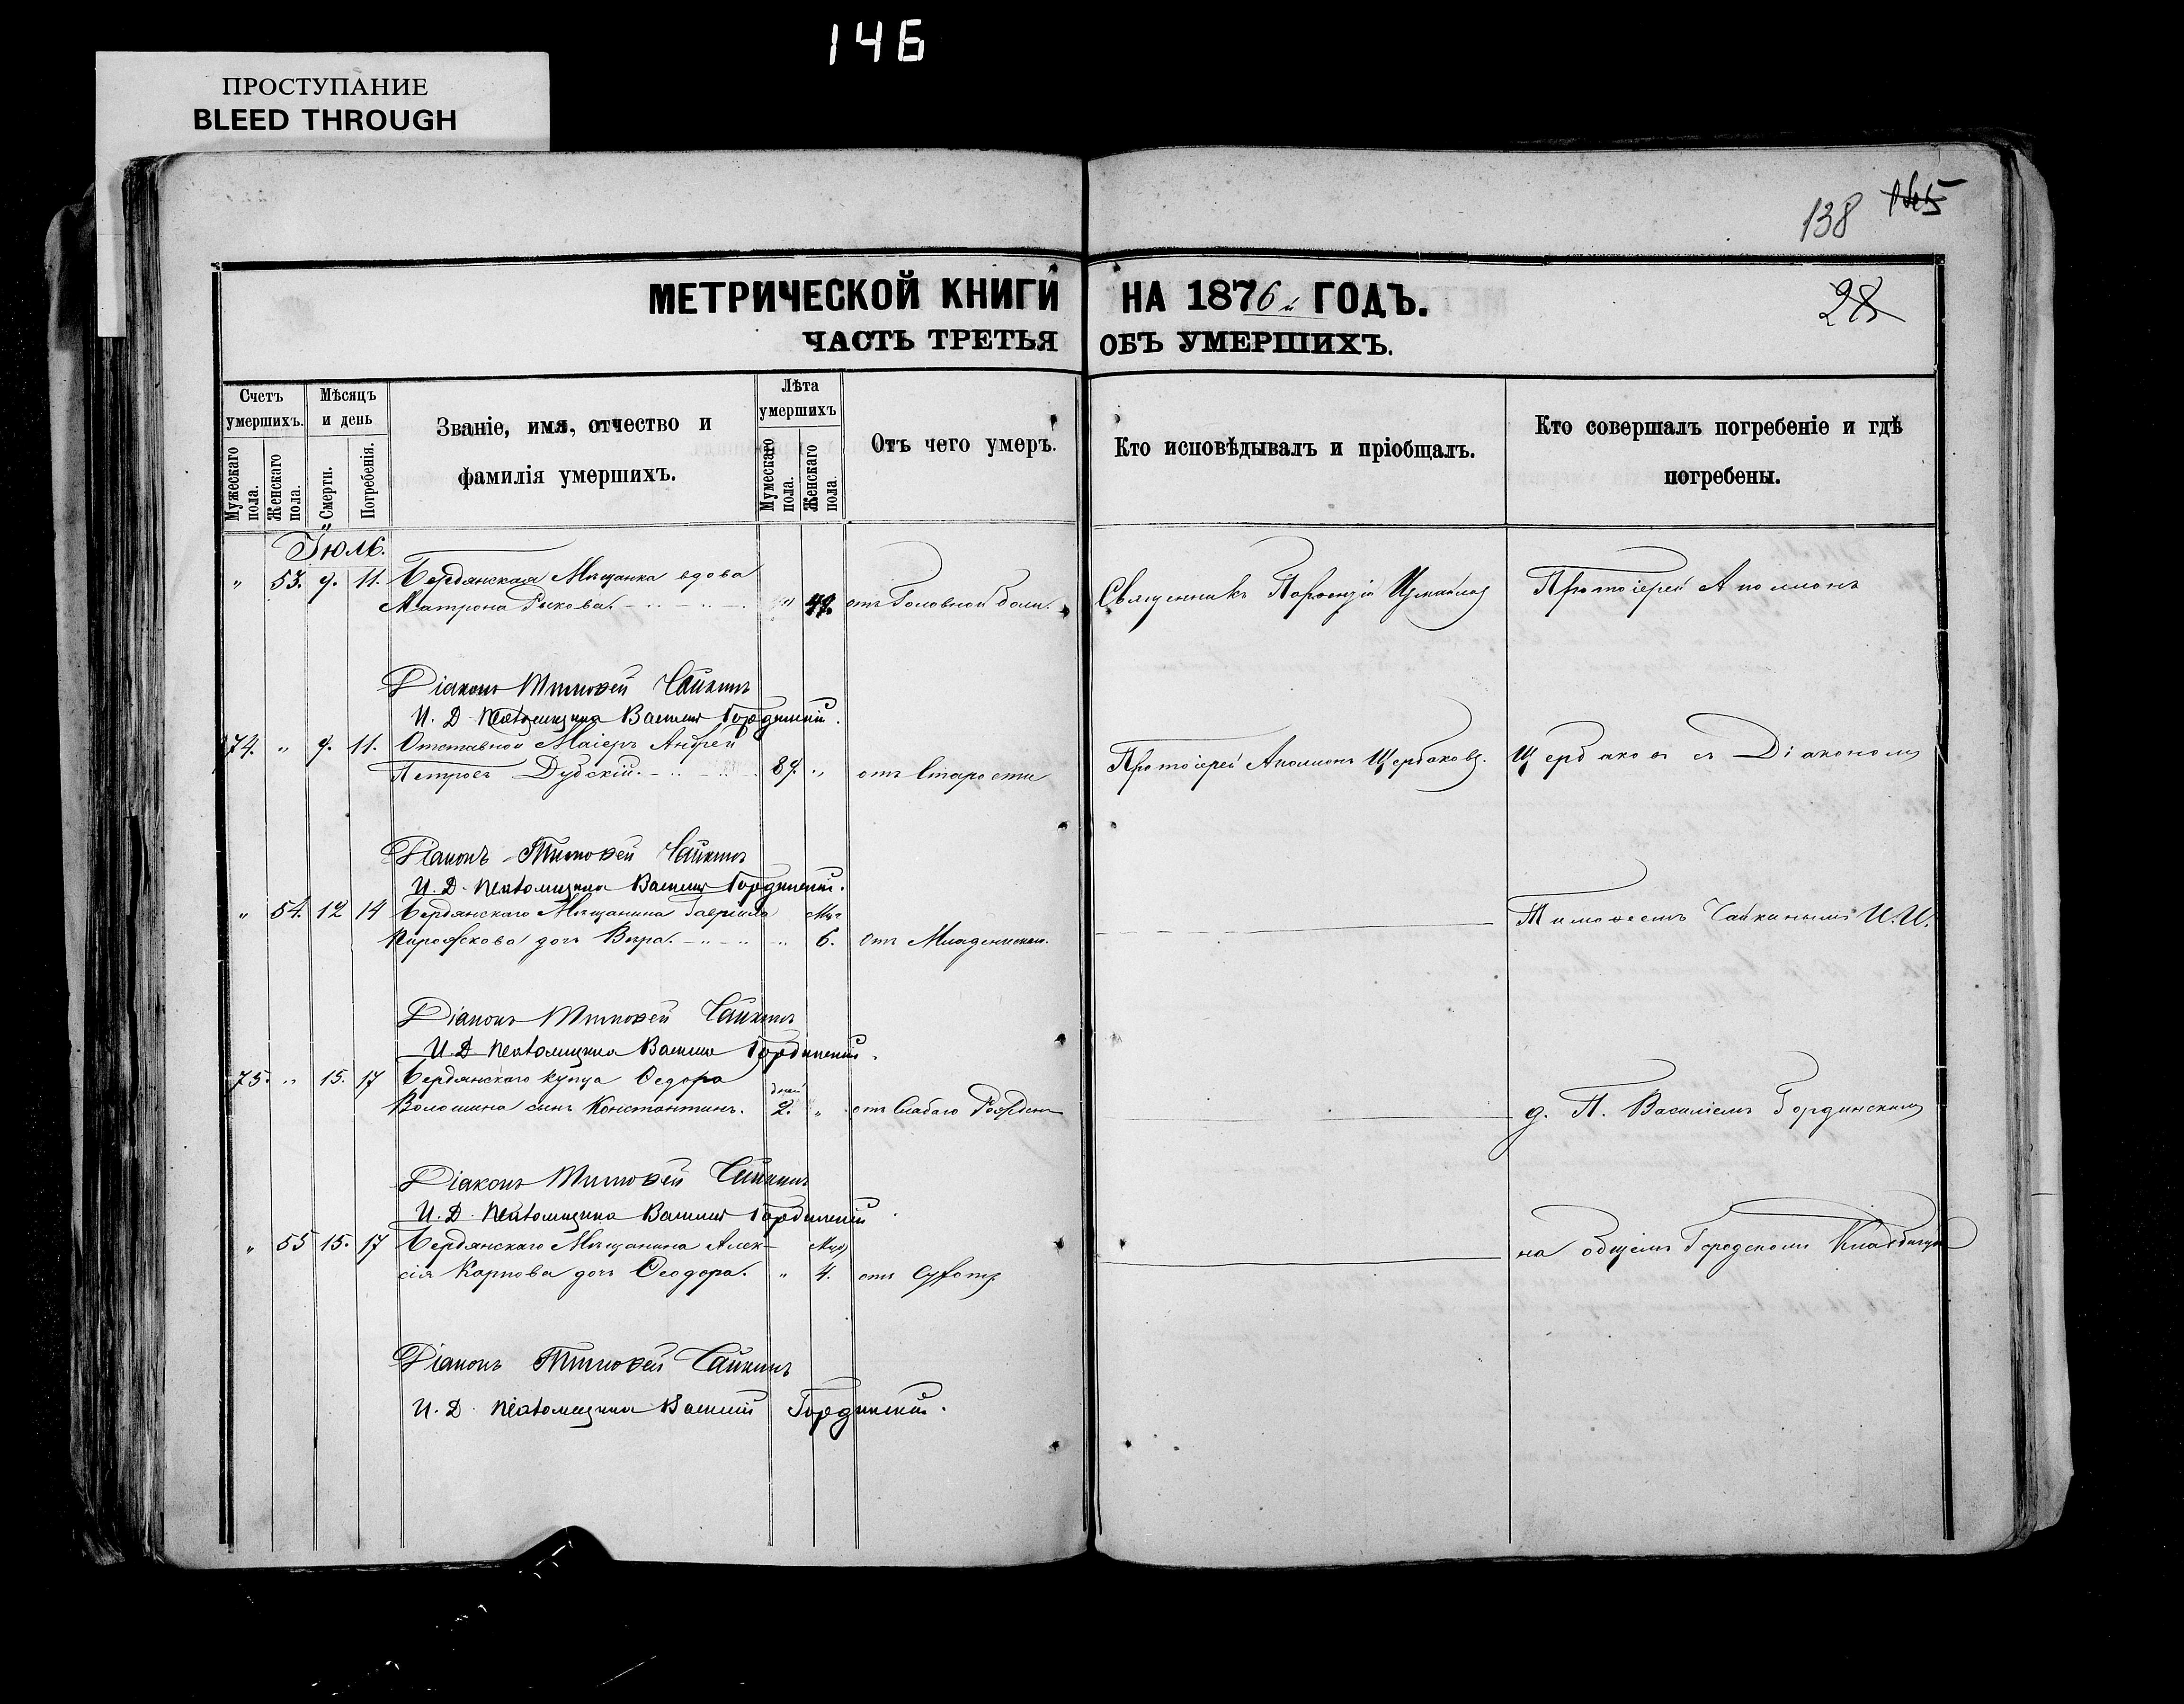 146
ПРОСТУПАНИЕ
BLEED THROUGH
138
МЕТРИЧЕСКОЙ КНИГИ НА 1876 й ГОДЪ.
28
ЧАСТЬ ТРЕТЬЯ ОБЪ УМЕРШИХЪ.
Счетъ умершихъ.
Мужескаго пола.
Женскаго пола.
Мѣсяцъ и день
Смерти.
Погребенія.
Званіе, имя, отчество и
фамилія умершихъ.
Лѣта умершихъ
Мужескаго пола.
Женскаго пола.
Отъ чего умеръ.
Кто исповѣдывалъ и пріобщалъ.
Кто совершалъ погребеніе и гдѣ
погребены.
Іюль.
" 53. 9. 11. Бердянская Мѣщанка вдова
Матрона Рыкова. " 49. отъ Головной боли. Священникъ Парѳеній Измайловъ Протоіерей Аполлонъ
Діаконъ Тимоѳей Чайкинъ
И. Д. Псаломщика Василій Гординскій.
74. " 9. 11. Отставной Маіоръ Андрей
Петровъ Дубскій. 89. " отъ Старости Протоіерей Аполлонъ Щербаковъ. Щербаковъ съ Діакономъ
Діаконъ Тимоѳей Чайкинъ
И. Д. Псаломщика Василій Гординскій.
" 54. 12 14 Бердянскаго Мѣщанина Гавріила Мѣс
дочь Вѣра. " 6. Отъ Младенческ. Тимоѳеемъ Чайкинымъ И. И.
Діаконъ Тимоѳей Чайкинъ
И. Д. Псаломщика Василій Гординскій.
75. " 15. 17 Бердянскаго купца Ѳедора дней
Волошина сынъ Константинъ. 2. " отъ Слабаго Рожден д. П. Василіемъ Гординскимъ
Діаконъ Тимоѳей Чайкинъ
И. Д. Псаломщика Василій Гординскій
" 55 15. 17 Бердянскаго Мѣщанина Алек- Мѣс
сія Карпова дочь Ѳеодора. " 4. отъ на общемъ Городскомъ Кладбищѣ
Діаконъ Тимоѳей Чайкинъ
И. Д. Псаломщика Василій Гординскій.